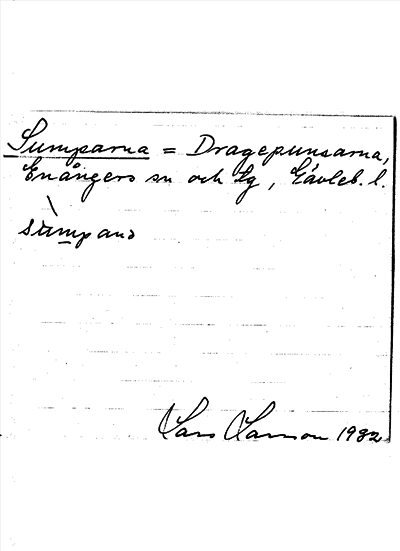 Sumparna = Dragepunsarna,
Enångers sn och sg, Gävleb. l.
sùmpano
Lars Larsson 1982